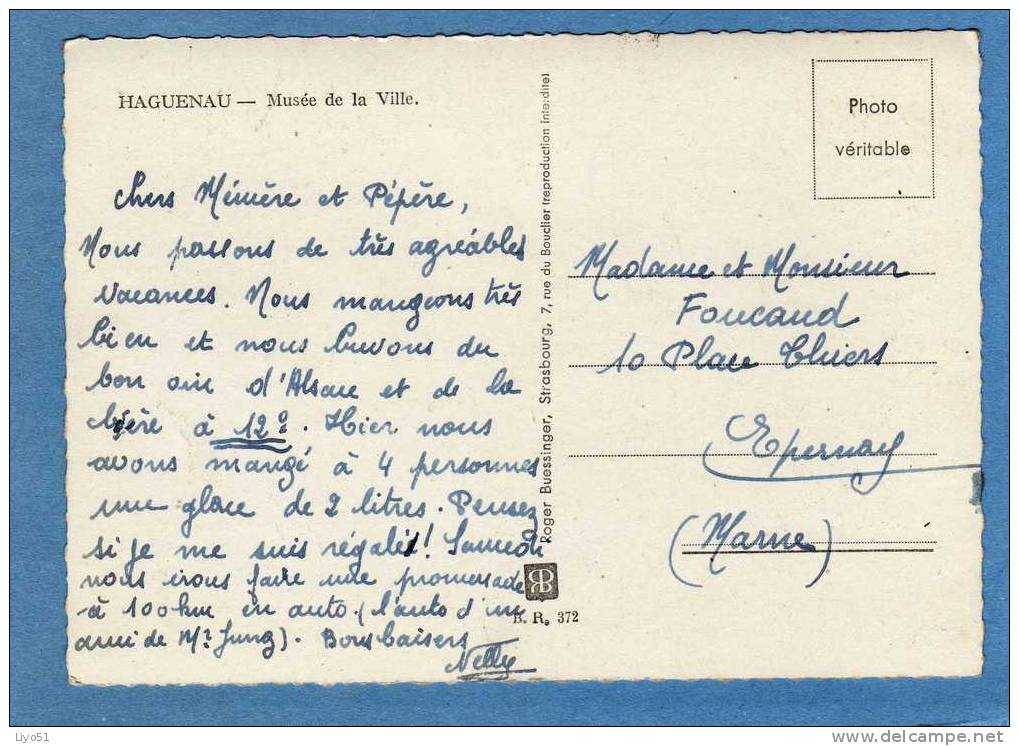 HAGUENAU — Musée de la Ville.
Chers Mémère et Pépère,
Nous passons de très agréables
vacances. Nous mangeons très
bien et nous buvons du
bon air d'Alsace et de la
bière à 12°. Hier nous
avons mangé à 4 personnes
une glace de 2 litres. Pensez
si je me suis régalé! Samedi
nous irons faire une promenade
à 100 km en auto. (l'auto d'un
ami de Mr Jung). Bons baisers
Nelly
Roger Buessinger, Strasbourg, 7, rue du Bouclier (reproduction interdite)
BR
B. R. 372
Photo
véritable
Madame et Monsieur
Foucaud
10 Place Thiers
Epernay
(Marne)
Liyo51
www.delcampe.net